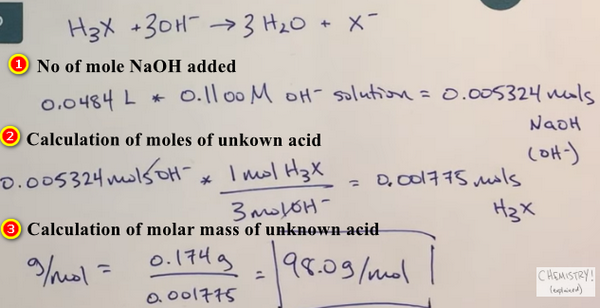 H₃X + 3OH⁻ → 3 H₂O + X⁻
1 No of mole NaOH added
0.0484 L * 0.1100 M OH⁻ solution = 0.005324 mols
NaOH
(OH⁻)
2 Calculation of moles of unkown acid
0.005324 mols OH⁻ * 1 mol H₃X / 3 mol OH⁻ = 0.001775 mols
H₃X
3 Calculation of molar mass of unknown acid
g/mol = 0.174 g / 0.001775 = 98.0 g/mol
CHEMISTRY!
(explained)